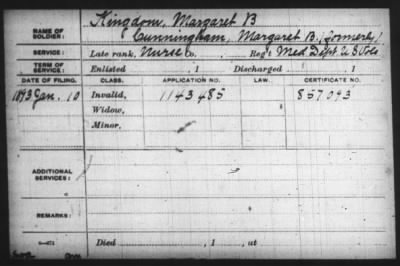 Kingdom, Margaret B
NAME OF SOLDIER: Cunningham, Margaret B. (formerly)
SERVICE: Late rank, Nurse Co. , Reg't Med Dept U S Vols
TERM OF SERVICE: Enlisted , 1 Discharged , 1
DATE OF FILING. CLASS. APPLICATION NO. LAW. CERTIFICATE NO.
1893 Jan. 10 Invalid, 1143485 857093
Widow,
Minor,
ADDITIONAL SERVICES:
REMARKS:
Died , 1 , at